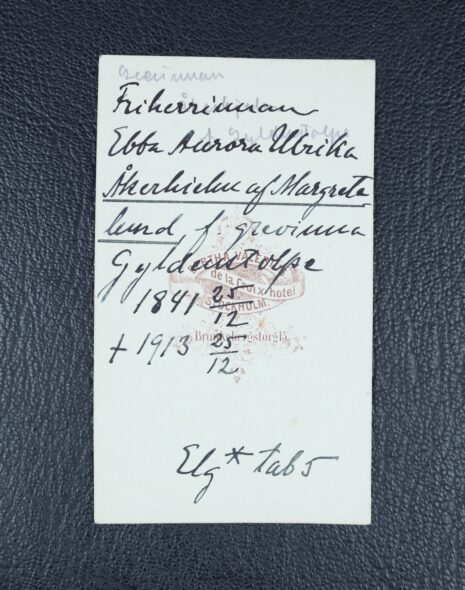 Grevinnan
Åkerhielm
f. Gyldenstolpe
Friherrinnan
Ebba Aurora Ulrika
Åkerhielm af Margreta
lund, f. grevinna
Gyldenstolpe
1841 25/12
+ 1913 25/12
BERTHA VALERIUS
de la Croix hotel
STOCKHOLM.
Brunkebergstorg 1
Elg * tab 5